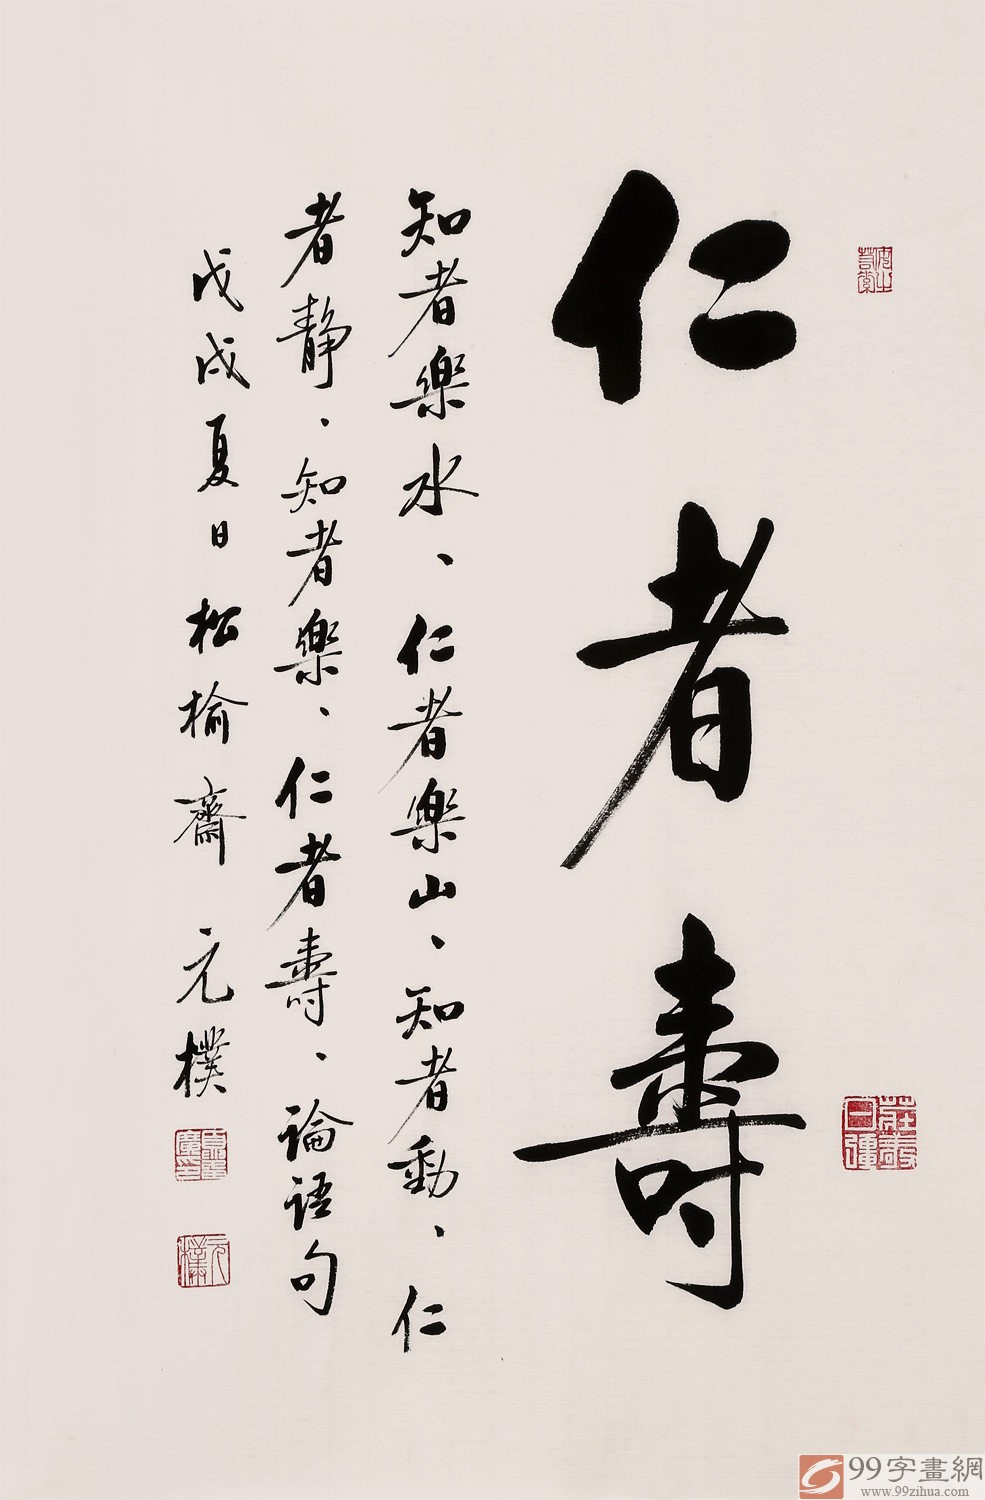 仁者壽
知者樂水、仁者樂山、知者動、仁
者静、知者樂、仁者壽、論語句
戊戌夏日松榆齋元樸
莊敬日強
元樸
99字畫網
www.99zihua.com